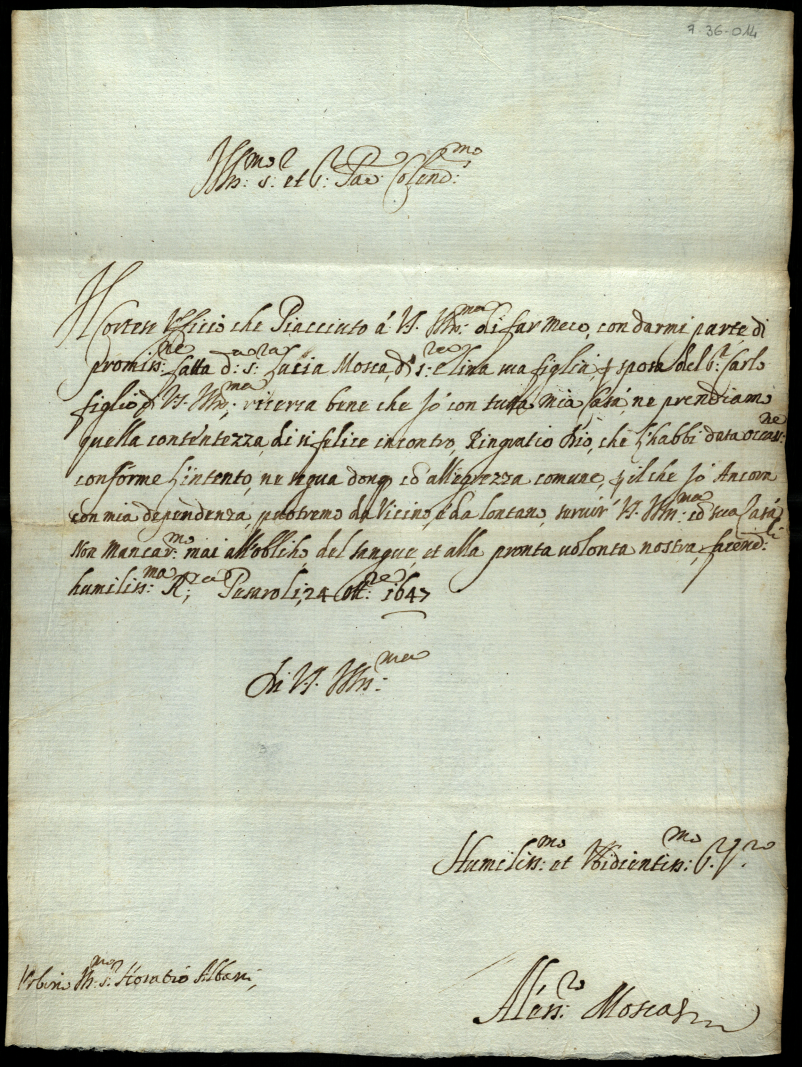 7-36-014
Ill:mo s:r et P: Pad: Colend:mo
Il Cortese Ufficio che Piacciuto á V.S. Ill:ma di far meco, con darmi parte di
promiss:ne fatta d: s:ra Lucia Mosca, e sua figlia sposa del s:r Carlo
figlio di V.S. Ill:ma; bene che Jó con tutta mia Casa, ne prendiamo
quella contentezza, di sì felice incontro, Ringratio Dio, che l'habbi data occas:ne
conforme l'intento, ne segua donq cõ allegrezza comune, p il che Jo Ancora
con mia dependenza, potremo da Vicino, e da lontano, servir V.S. Ill:ma cõ sua Casa,
Non mancar:mo mai all'obligho del sangue, et alla pronta volontà nostra, facend:li
humiliss:ma R:za Pesaro li 24 ott:re 1647
Di V.S. Ill:ma
Humiliss:mo et Vbidientiss:mo S:re
Urbino Ill:mo s:r Horatio Albani,
Aless:ro Mosca